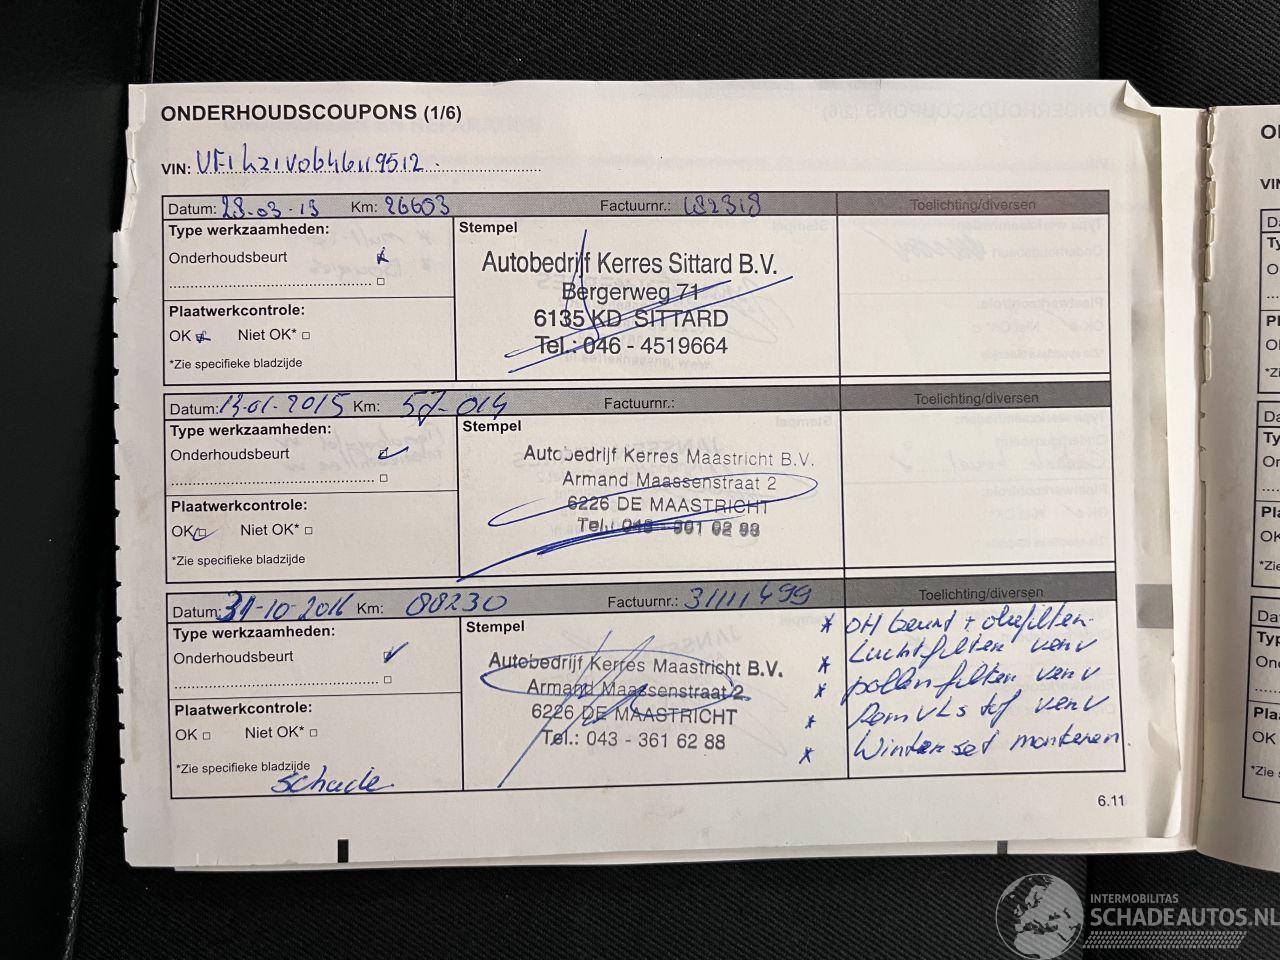 ONDERHOUDSCOUPONS (1/6)
VIN:
Datum: 28-03-13 Km: 26603 Factuurnr.: 182318 Toelichting/diversen
Type werkzaamheden:
Onderhoudsbeurt
Plaatwerkcontrole:
OK Niet OK*
*Zie specifieke bladzijde
Stempel
Autobedrijf Kerres Sittard B.V.
Bergerweg 71
6135 KD SITTARD
Tel.: 046 - 4519664
Datum: 13-01-2015 Km: 57-014 Factuurnr.: Toelichting/diversen
Type werkzaamheden:
Onderhoudsbeurt
Plaatwerkcontrole:
OK Niet OK*
*Zie specifieke bladzijde
Stempel
Autobedrijf Kerres Maastricht B.V.
Armand Maassenstraat 2
6226 DE MAASTRICHT
Tel.: 043 - 361 62 88
Datum: 31-10-2016 Km: 88230 Factuurnr.: 31111499 Toelichting/diversen
Type werkzaamheden:
Onderhoudsbeurt
Plaatwerkcontrole:
OK Niet OK*
*Zie specifieke bladzijde
Schade
Stempel
Autobedrijf Kerres Maastricht B.V.
Armand Maassenstraat 2
6226 DE MAASTRICHT
Tel.: 043 - 361 62 88
* OH beurt + oliefilter
* Luchtfilter verv
* pollenfilter verv
* Remvlstof verv
* Winterset monteren
6.11
INTERMOBILITAS
SCHADEAUTOS.NL